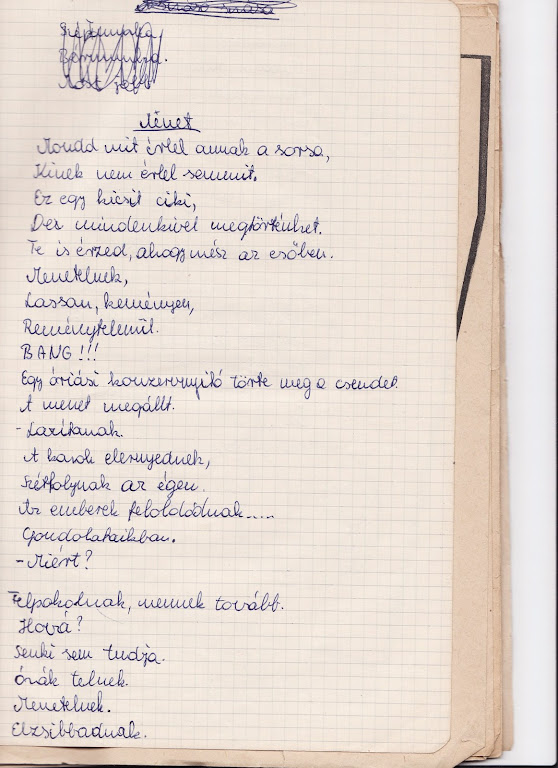 Menet
Mondd mit érlel annak a sorsa,
Kinek nem érlel semmit.
Ez egy kicsit ciki,
De mindenkivel megtörténhet.
Te is érzed, ahogy mész az esőben.
Menetelnek,
Lassan, keményen,
Reménytelenül.
BANG!!!
Egy óriási konzervnyitó törte meg a csendet.
A menet megállt.
- Lazítanak.
A karok elernyednek,
Szétfolynak az égen.
Az emberek feloldódnak.....
Gondolataikban.
- Miért?
Felpakolnak, mennek tovább.
Hová?
Senki sem tudja.
Órák telnek.
Menetelnek.
Elzsibbadnak.